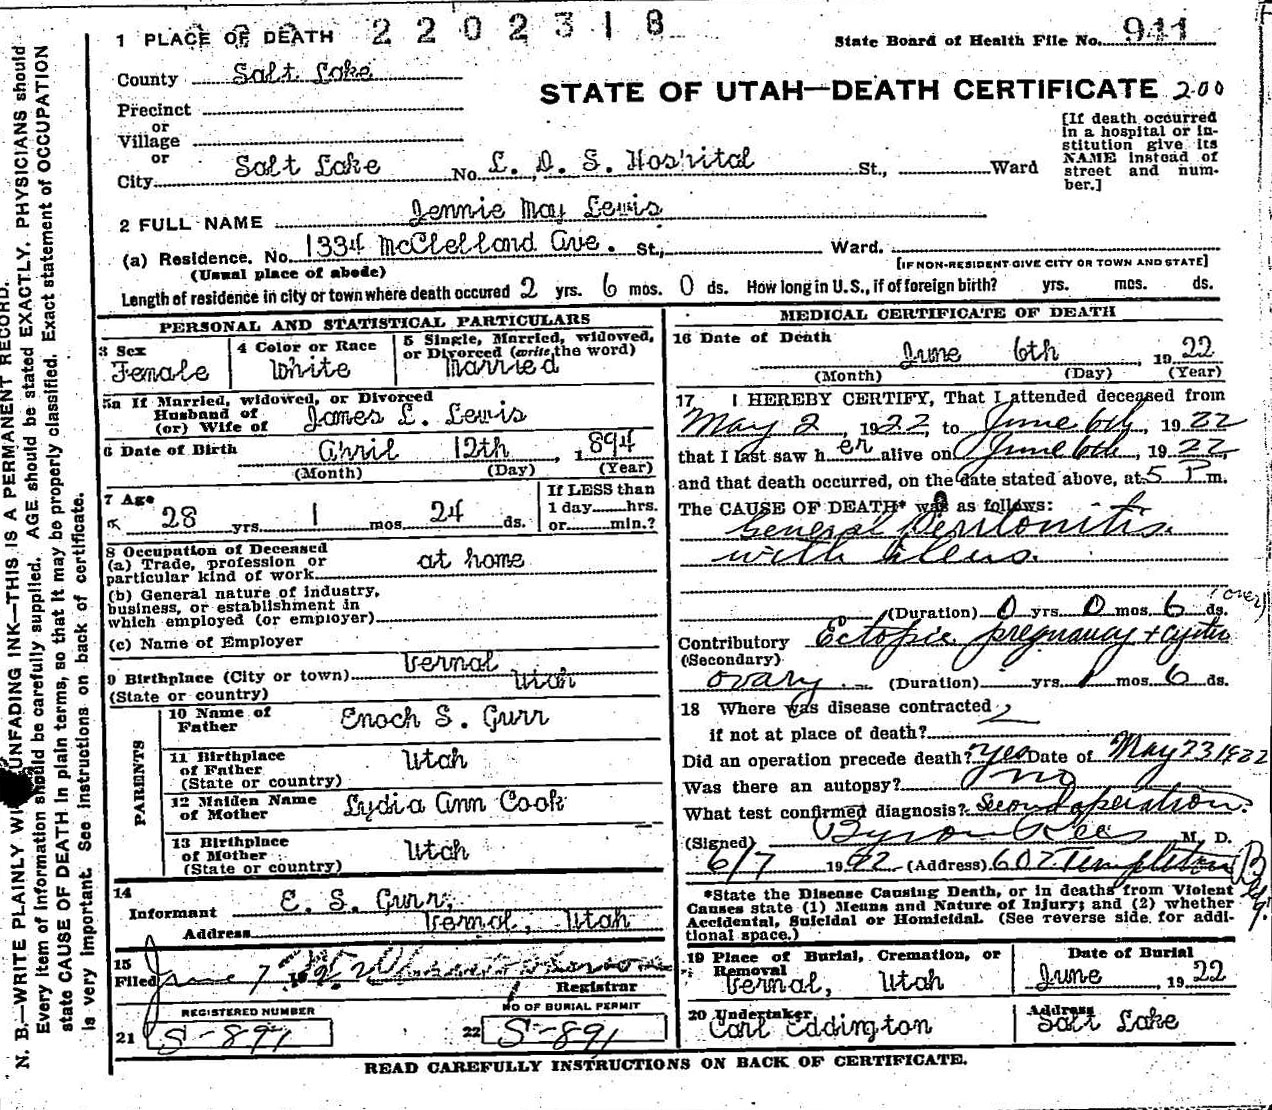 2202318
1 PLACE OF DEATH
State Board of Health File No. 941
County Salt Lake
STATE OF UTAH—DEATH CERTIFICATE 200
Precinct
or
Village
or
City Salt Lake No. L. D. S. Hospital St., Ward
[If death occurred
in a hospital or in-
stitution give its
NAME instead of
street and num-
ber.]
2 FULL NAME Jennie May Lewis
(a) Residence. No. 1334 McClelland Ave. St., Ward.
(Usual place of abode) [IF NON-RESIDENT GIVE CITY OR TOWN AND STATE]
Length of residence in city or town where death occured 2 yrs. 6 mos. 0 ds. How long in U.S., if of foreign birth? yrs. mos. ds.
PERSONAL AND STATISTICAL PARTICULARS
3 Sex
Female
4 Color or Race
White
5 Single, Married, widowed,
or Divorced (write the word)
Married
5a If Married, widowed, or Divorced
Husband of
(or) Wife of James L. Lewis
6 Date of Birth April 12th, 1894
(Month) (Day) (Year)
7 Age
28 yrs. 1 mos. 24 ds.
If LESS than
1 day hrs.
or min.?
8 Occupation of Deceased
(a) Trade, profession or
particular kind of work at home
(b) General nature of industry,
business, or establishment in
which employed (or employer)
(c) Name of Employer
9 Birthplace (City or town) Vernal
(State or country) Utah
PARENTS
10 Name of
Father Enoch S. Gurr
11 Birthplace
of Father Utah
(State or country)
12 Maiden Name
of Mother Lydia Ann Cook
13 Birthplace
of Mother Utah
(State or country)
14
Informant E. S. Gurr,
Address Vernal, Utah
15
Filed June 7
Registrar
REGISTERED NUMBER
21 S-891
NO OF BURIAL PERMIT
22 S-891
MEDICAL CERTIFICATE OF DEATH
16 Date of Death
June 6th 1922
(Month) (Day) (Year)
17 I HEREBY CERTIFY, That I attended deceased from
May 2, 1922, to June 6th, 1922
that I last saw her alive on June 6th, 1922,
and that death occurred, on the date stated above, at 5 P m.
The CAUSE OF DEATH* was as follows:
General Peritonitis
with Ileus.
(over)
(Duration) 0 yrs. 0 mos. 6 ds.
Contributory Ectopic pregnancy + cystic
(Secondary)
ovary (Duration) yrs. 1 mos. 6 ds.
18 Where was disease contracted
if not at place of death? ?
Did an operation precede death? Yes Date of May 23 1922
Was there an autopsy? no
What test confirmed diagnosis? Second operation.
(Signed) Byron Rees M. D.
6/7 1922 (Address) 602 Templeton Bldg.
*State the Disease Causing Death, or in deaths from Violent
Causes state (1) Means and Nature of Injury; and (2) whether
Accidental, Suicidal or Homicidal. (See reverse side for addi-
tional space.)
19 Place of Burial, Cremation, or
Removal
Vernal, Utah
Date of Burial
June 1922
20 Undertaker
Carl Eddington
Address
Salt Lake
READ CAREFULLY INSTRUCTIONS ON BACK OF CERTIFICATE.
N. B.—WRITE PLAINLY WITH UNFADING INK—THIS IS A PERMANENT RECORD.
Every item of information should be carefully supplied. AGE should be stated EXACTLY. PHYSICIANS should
state CAUSE OF DEATH in plain terms, so that it may be properly classified. Exact statement of OCCUPATION
is very important. See instructions on back of certificate.